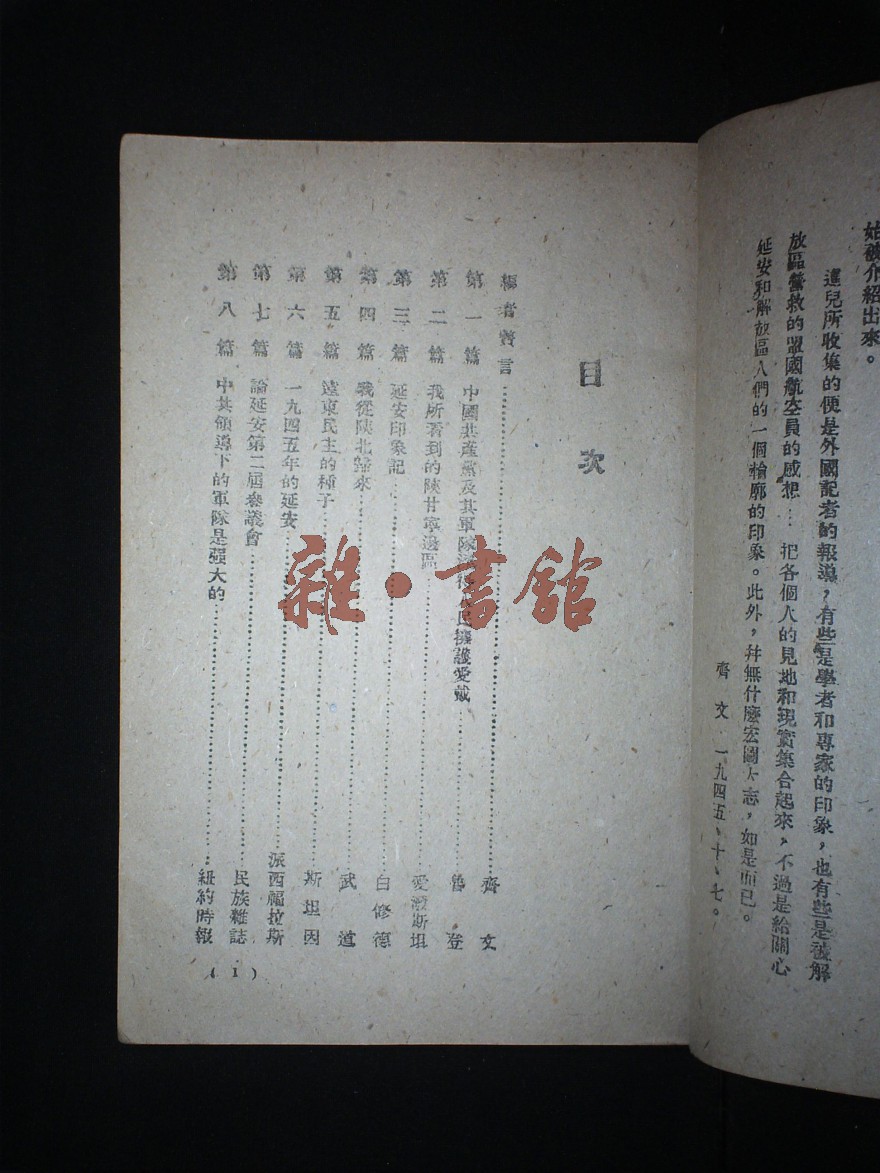 始被介紹出來。
這兒所收集的便是外國記者的報導，有些是學者和專家的印象，也有些是被解
放區營救的盟國航空員的感想… 把各個人的見地和現實集合起來，不過是給關心
延安和解放區人們的一個輪廓的印象。此外，幷無什麼宏圖大志，如是而已。
齊文 一九四五、十、七。
目次
編者贅言……齊文
第一篇 中國共產黨及其軍隊 民擁護愛戴……魯登
第二篇 我所看到的陝甘寧邊區……愛潑斯坦
第三篇 延安印象記……白修德
第四篇 我從陝北歸來……武道
第五篇 遠東民主的種子……斯坦因
第六篇 一九四五年的延安……派西福拉斯
第七篇 論延安第二屆參議會……民族雜誌
第八篇 中共領導下的軍隊是强大的……紐約時報
(1)
雜·書舘